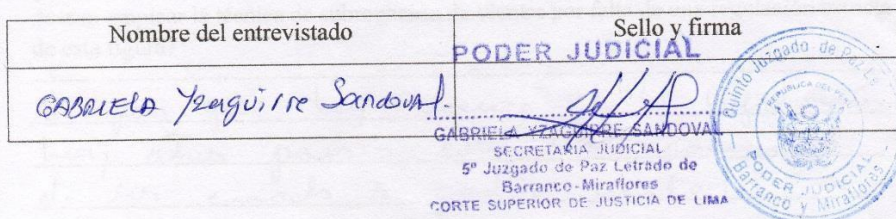 Nombre del entrevistado
Sello y firma
GABRIELA Yzaguirre Sandoval.
PODER JUDICIAL
GABRIELA YZAGUIRRE SANDOVAL
SECRETARIA JUDICIAL
5º Juzgado de Paz Letrado de
Barranco - Miraflores
CORTE SUPERIOR DE JUSTICIA DE LIMA
Quinto Juzgado de Paz
REPUBLICA DEL PERU
PODER JUDICIAL
Barranco y Miraflores